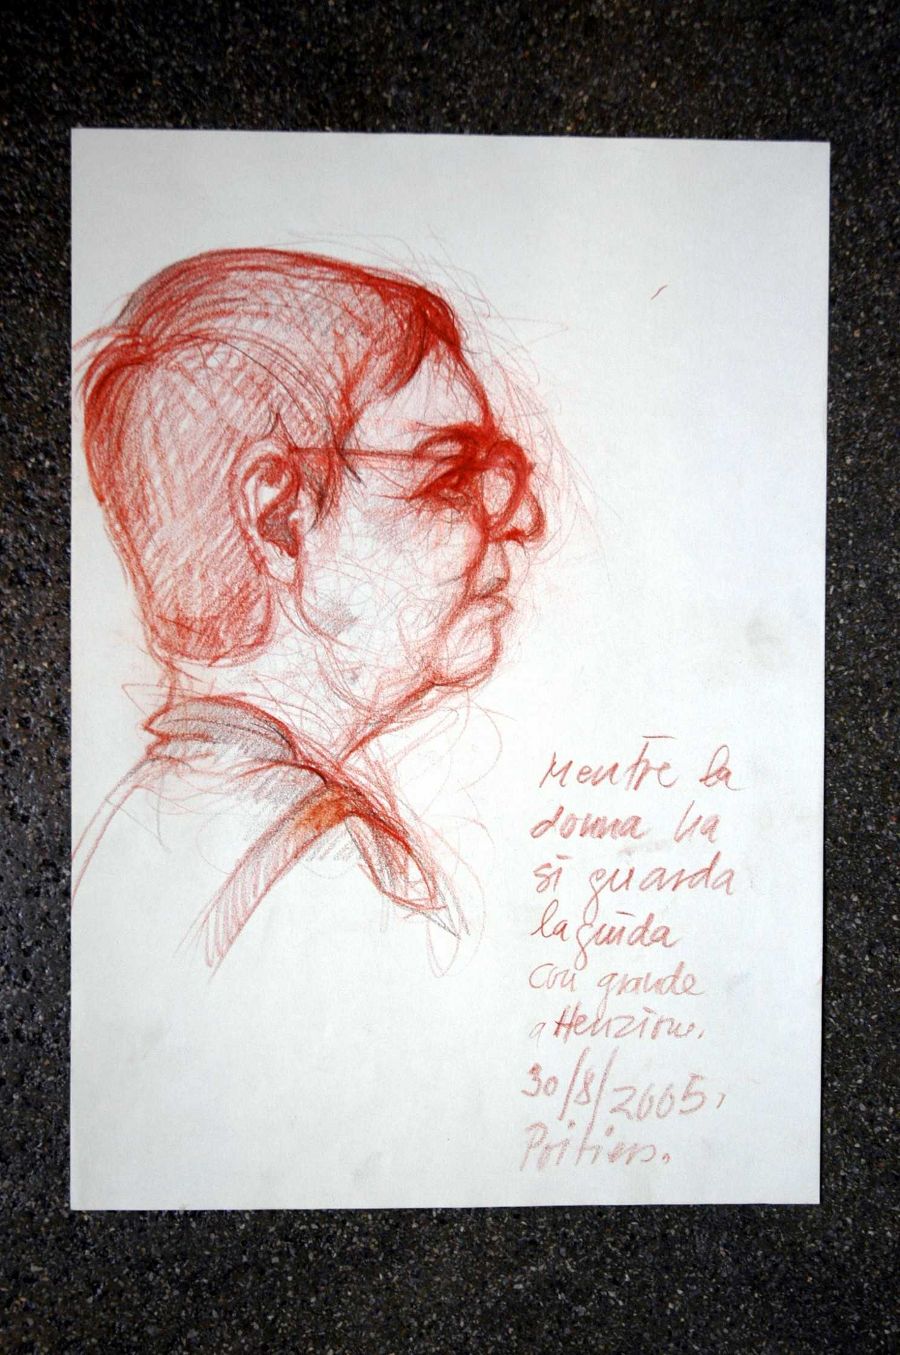 Mentre la
donna ha
si guarda
la guida
con grande
attenzione.
30/8/2005,
Poitiers.